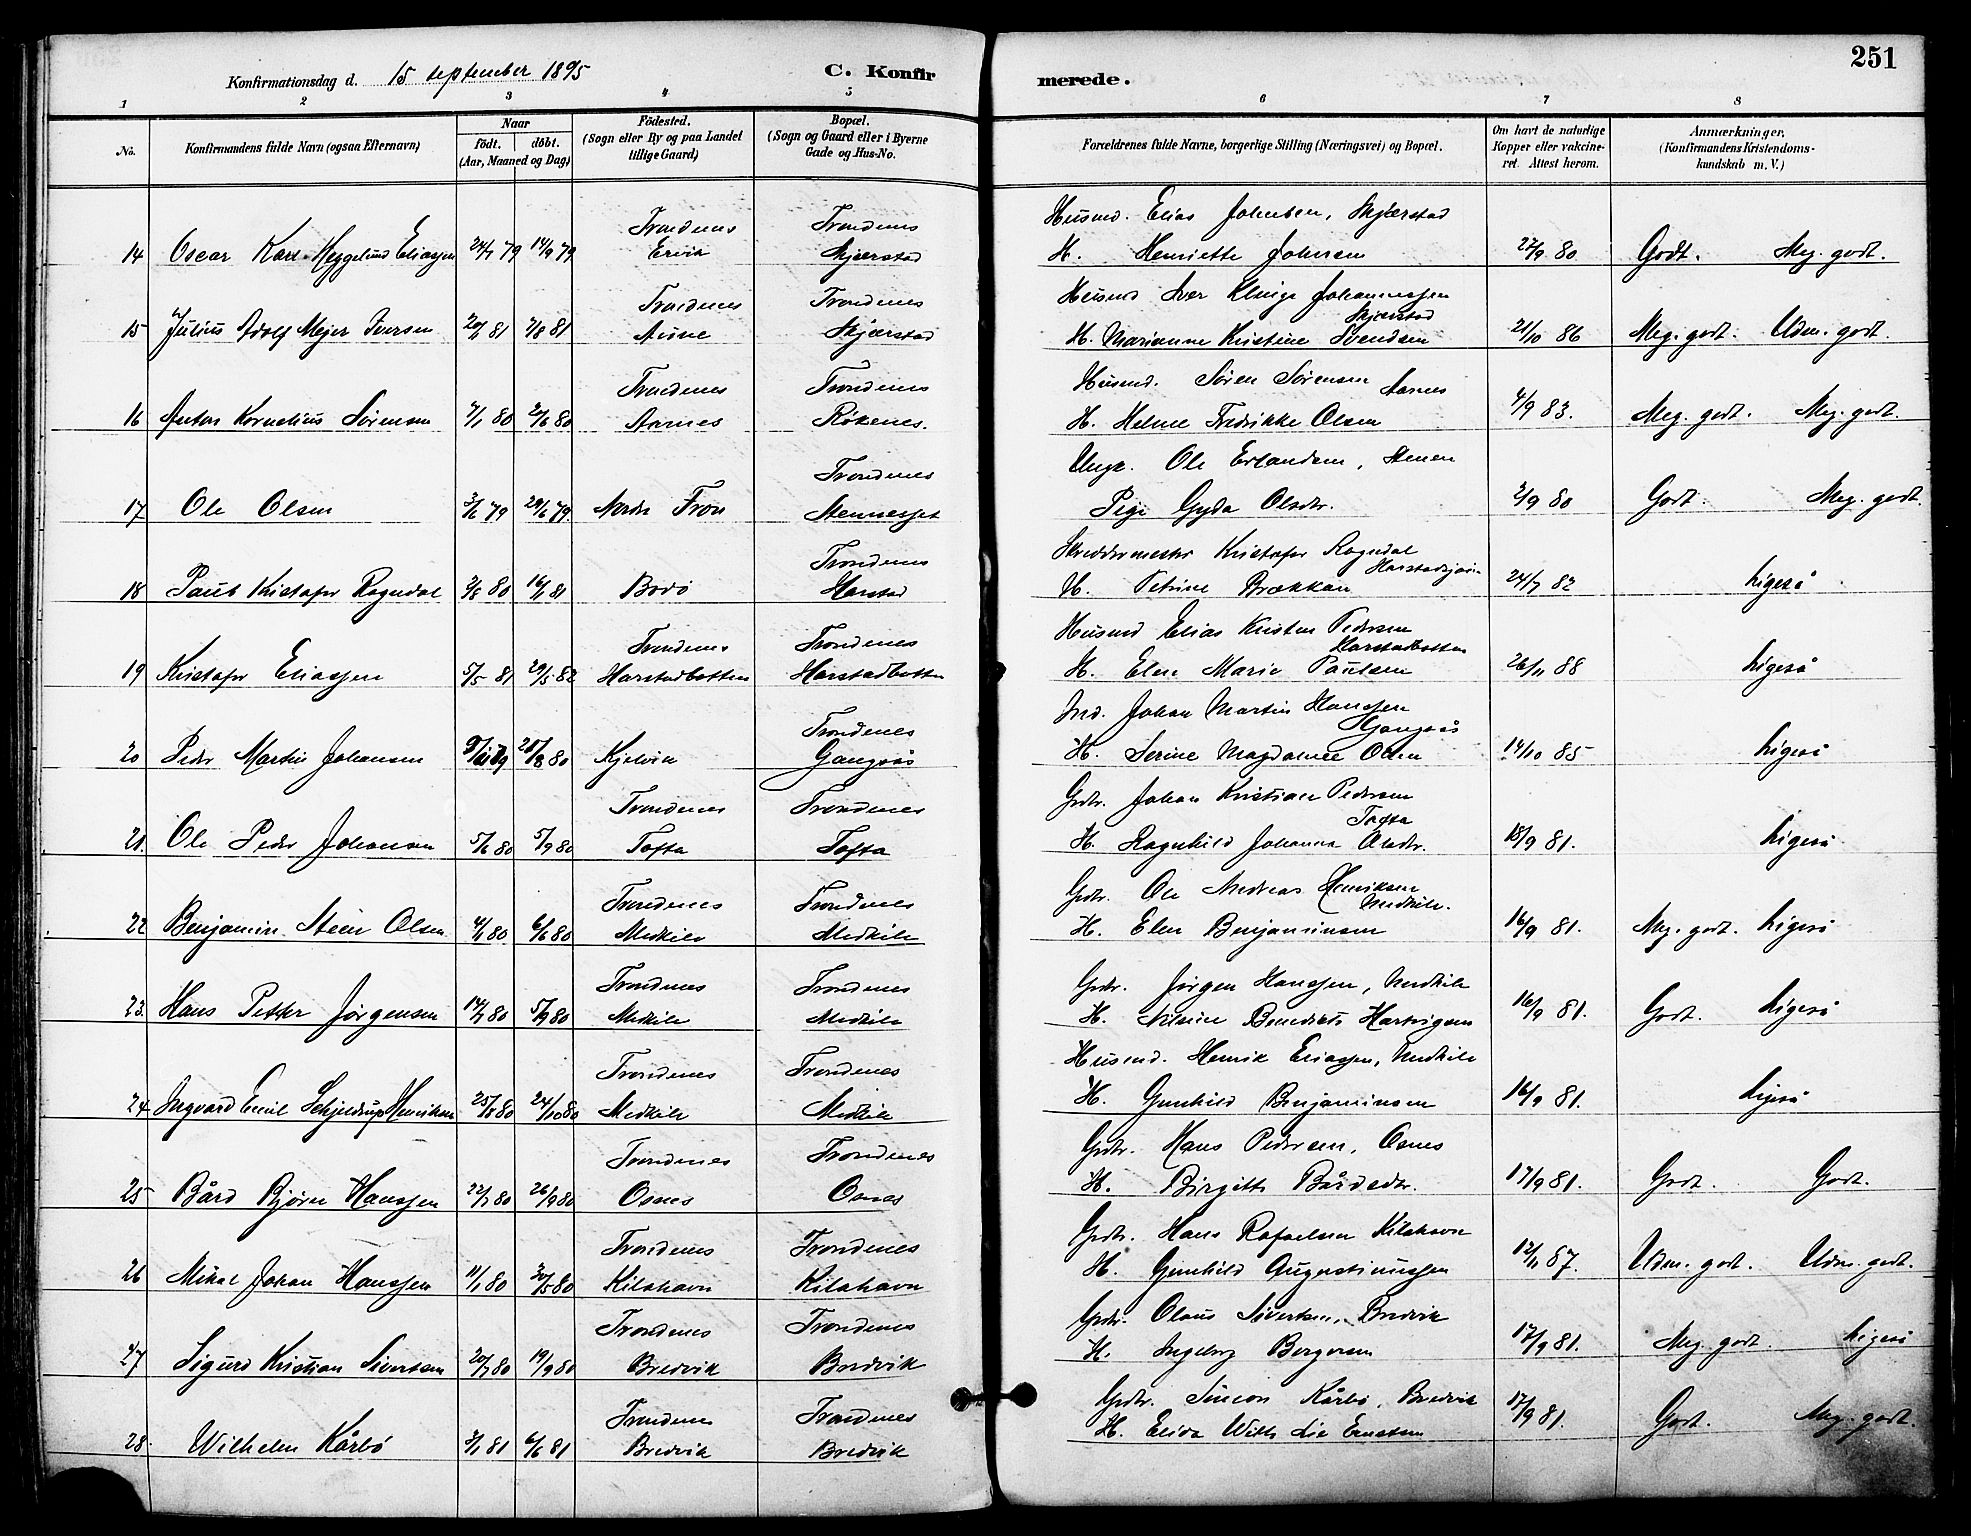 251
Konfirmationsdag d. 15 september 1895 C. Konfirmerede.
1 2 3 4 5 6 7 8
No. Konfirmandens fulde Navn (ogsaa Efternavn) Naar födt. döbt. (Aar, Maaned og Dag) Födested. (Sogn eller By og paa Landet tillige Gaard) Bopæl. (Sogn og Gaard eller i Byerne Gade og Hus-No. Forældrenes fulde Navne, borgerlige Stilling (Næringsvei) og Bopæl. Om havt de naturlige Kopper eller vakcineret. Attest herom. Anmærkninger, (Konfirmandens Kristendomskundskab m. V.)
Trondenes Trondenes Husmd. Elias Johnsen, Skjærstad
14 Oscar Karl Heggelund Eliassen 24/7 79 14/9 79 Ervik Skjærstad H. Henriette Johnsen 27/9 80 Godt. Meg. godt.
Trondenes Trondenes Husmd Iver Klinge Johannessen Skjærstad
15 Julius Adolf Mejer Iversen 81 7/8 81 Aune Skjærstad H. Marianne Kristine Svendsen 21/10 86 Meg. godt. Udm. godt.
Trondenes Trondenes Husmd. Søren Sørensen Aarnes
16 Anton Kornelius Sørensen 7/1 80 20/6 80 Aarnes Røkenes. H. Helene Fredrikke Olsen 4/9 83. Meg. godt. Meg. godt.
Trondenes Ungk. Ole Erlandsen,
17 Ole Olsen 3/6 79 29/6 79. Nordre Fron Mennesset Pige Gyda Olsdtr. 2/9 80 Godt. Meg. godt.
Trondenes Skreddermester Kristofer Rogndal Harstadsjøen
18 Paul Kristofer Rogndal 2/8 80 16/1 81 Bodø Harstad H. Petrine Brækkan 24/7 82 Ligeså
Trondenes Trondenes Husmd Elias Kristen Pedersen Harstadbotten
19 Kristofer Eliassen 5/5 81 29/5 82 Harstadbotten Harstadbotten H. Elen Marie Paulsen 26/11 88 Ligeså
Trondenes Ind. Johan Martin Hanssen Gangsås
20 Peder Martin Johansen 80 Kjelvik Gangsås H. Serine Magdalene Olsen 14/10 85 Ligeså
Trondenes Trondenes Grdbr. Johan Kristian Pedersen Tofta
21. Ole Peder Johansen 5/6 80 5/9 80 Tofta Tofta H. Ragnhild Johanna Olsdtr. 18/9 81. Ligeså
Trondenes Trondenes Grdbr. Ole Andreas Henriksen Medkile.
22 Benjamin Steen Olsen 4/1 80 6/6 80 Medkile Medkile H. Elen Benjaminsen 16/9 81. Meg. godt. Ligeså
Trondenes Trondenes Grdbr. Jørgen Hanssen, Medkile
23. Hans Petter Jørgensen 14/7 80 5/9 80 Medkile Medkile H. Nilsine Benedikte Hartvigsen 16/9 81. Godt. Ligeså
Trondenes Trondenes Husmd. Henrik Eliassen, Medkile
24 Ingvard Emil Schjeldrup Henriksen 25/8 80 24/10 80 Medkile Medkile H. Gunhild Benjaminsen 16/9 81. Ligeså
Trondenes Trondenes Grdbr. Hans Pedersen, Osnes
25 Bård Bjørn Hanssen 22/7 80 26/9 80 Osnes Osnes H. Birgitte Bårdsdtr. 17/9 81. Godt. Godt.
Trondenes Trondenes Grdbr. Hans Rafaelsen Kilahavn
26 Mikal Johan Hanssen 11/1 80 30/5 80 Kilahavn Kilahavn H. Gunhild Augustinussen 12/11 87. Udm. godt. Udm. godt.
Trondenes Trondenes Grdbr. Olaus Sivertsen, Bredvik
27 Sigurd Kristian Sivertsen 20/7 80 19/9 80 Bredvik Bredvik H. Ingeborg Bergersen 17/9 81. Meg. godt. Ligeså
Trondenes Trondenes Grdbr. Simeon Kårbø, Bredvik
28. Wilhelm Kårbø 3/1 81 6/6 81 Bredvik Bredvik H. Elida Lie Enoksen 17/9 81. Godt. Meg. godt.